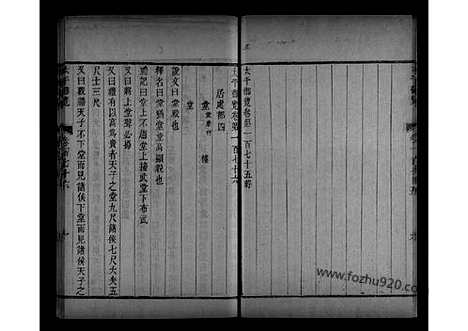 太平御覽卷第一百七十五終
太平御覽卷第一百七十六
居處部四
堂 堂皇附 樓
堂
說文曰堂殿也
釋名曰堂猶堂堂高顯貌也
禮記曰堂上不趨堂上接武堂下布武
又曰將上堂聲必揚
又曰禮有以高為貴者天子之堂九尺諸侯七尺大夫五
尺士三尺
又曰覲禮天子不下堂而見諸侯下堂而見諸侯天子之
www.fozhu920.com